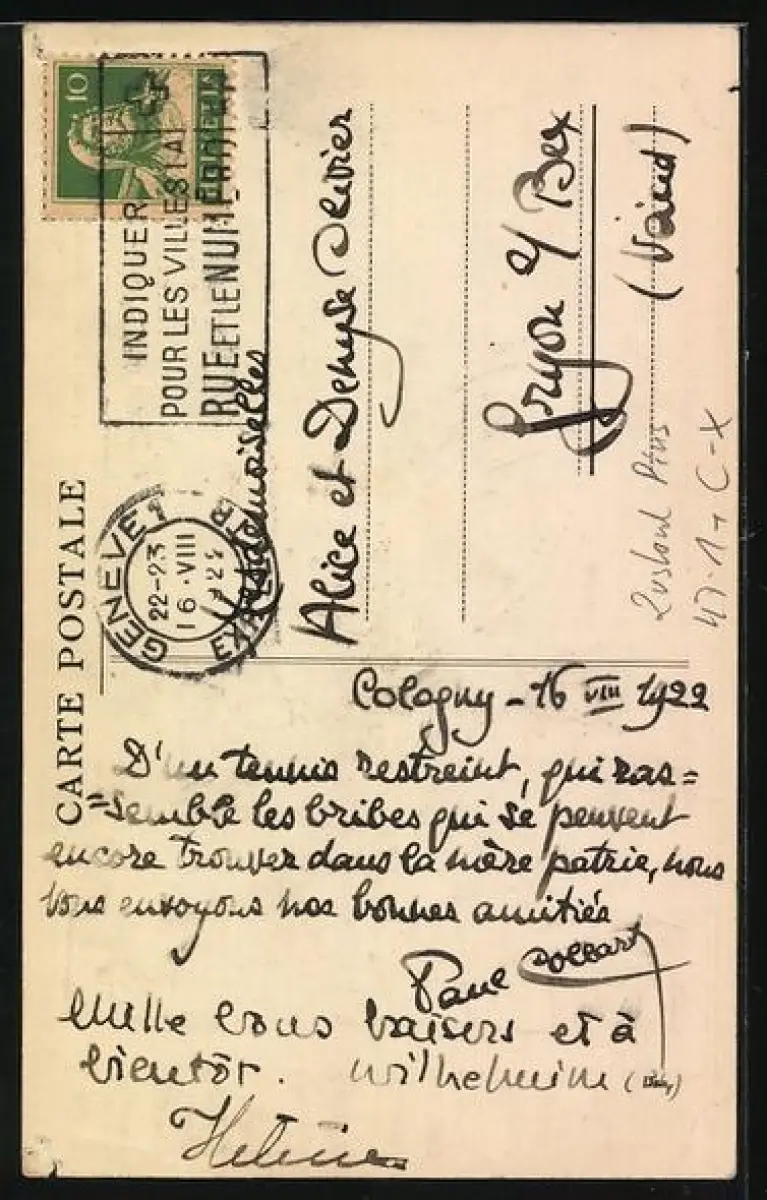 CARTE POSTALE
10
HELVETIA
INDIQUER
POUR LES VILLES LA
RUE ET LE NUMÉRO
GENÈVE 1
22-23
16.VIII
Mesdemoiselles
Alice et Denyse Olivier
Gryon s/ Bex
(Vaud)
47.1+ C-X
Cologny - 16 VIII 1922
D'un tennis restreint, qui ras=
=semble les bribes qui se peuvent
encore trouver dans la mère patrie, nous
vous envoyons nos bonnes amitiés
Paul Collart
Mille bons baisers et à
bientôt. Wilhelmine
Hélène